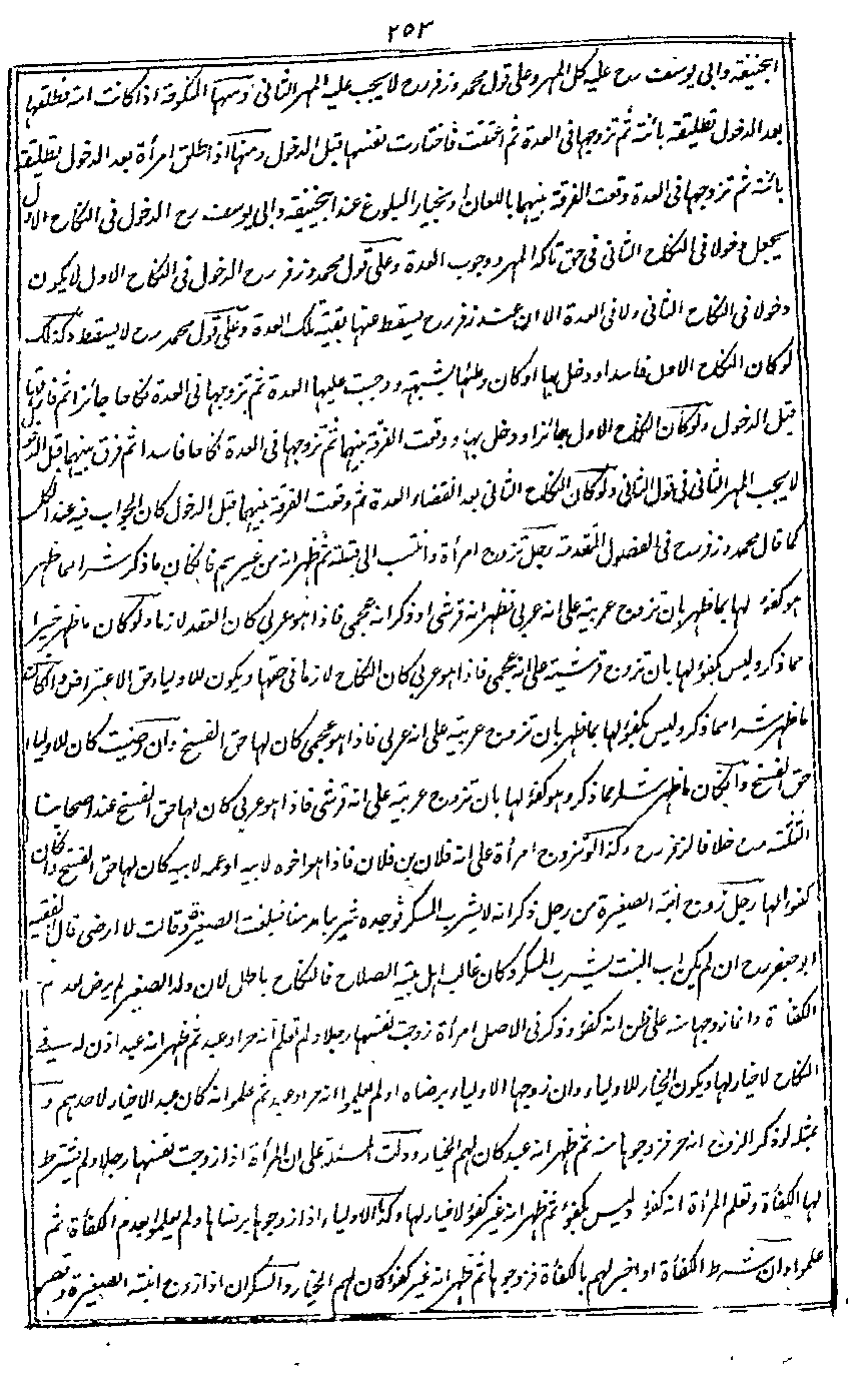 ٢٥٣
ابيحنيفة وابي يوسف رح عليه كل المهر وعلى قول محمد وزفر رح لا يجب عليه المهر الثاني ومنها المنكوحة اذا كانت امة فطلقها
بعد الدخول تطليقة بائنة ثم تزوجها في العدة ثم اعتقت فاختارت نفسها قبل الدخول ومنها اذا طلق امرأة بعد الدخول تطليقة
بائنة ثم تزوجها في العدة وقعت الفرقة بينهما باللعان او بخيار البلوغ عند ابيحنيفة وابي يوسف رح الدخول في النكاح الاول
يجعل دخولا في النكاح الثاني في حق تاكد المهر ووجوب العدة وعلى قول محمد وزفر رح الدخول في النكاح الاول لا يكون
دخولا في النكاح الثاني ولا في العدة الا ان عند زفر رح يسقط عنها بقية تلك العدة وعلى قول محمد رح لا يسقط وكذلك
لو كان النكاح الاول فاسدا ودخل بها او كان وطئها بشبهة ووجبت عليها العدة ثم تزوجها في العدة نكاحا جائزا ثم فارقها
قبل الدخول ولو كان النكاح الاول جائزا ودخل بها ووقعت الفرقة بينهما ثم تزوجها في العدة نكاحا فاسدا ثم فرق بينهما قبل الدخول
لا يجب المهر الثاني في قول الثاني ولو كان النكاح الثاني بعد انقضاء العدة ثم وقعت الفرقة بينهما قبل الدخول كان الجواب فيه عند الكل
كما قال محمد وزفر رح في الفصول المتقدمة رجل تزوج امرأة وانتسب الى قبيلة ثم ظهر انه من غيرهم فان كان ما ذكر شرا مما ظهر
هو كفؤ لها بما ظهر بان تزوج عربية على انه عربي فظهر انه قرشي او ذكر انه عجمي فاذا هو عربي كان العقد لازما ولو كان ما ظهر خيرا
مما ذكر وليس بكفؤ لها بان تزوج قرشية على انه عجمي فاذا هو عربي كان النكاح لازما في حقها ويكون للاولياء حق الاعتراض وان كان
ما ظهر شرا مما ذكر وليس بكفؤ لها بما ظهر بان تزوج عربية على انه عربي فاذا هو عجمي كان لها حق الفسخ وان رضيت كان للاولياء
حق الفسخ وان كان ما ظهر شرا مما ذكر وهو كفؤ لها بان تزوج عربية على انه قرشي فاذا هو عربي كان لها حق الفسخ عند اصحابنا
الثلثة رح خلافا لزفر رح وكذا لو تزوج امرأة على انه فلان بن فلان فاذا هو اخوه لابيه او عمه لابيه كان لها حق الفسخ وان كان
كفوا لها رجل زوج ابنته الصغيرة من رجل ذكر انه لا يشرب المسكر فوجده شريبا مدمنا فبلغت الصغيرة وقالت لا ارضى قال الفقيه
ابو جعفر رح ان لم يكن اب البنت يشرب المسكر وكان غالب اهل بيته الصلاح فالنكاح باطل لان والد الصغير لم يرض بعدم
الكفاءة وانما زوجها منه على ظن انه كفؤ وذكر في الاصل امرأة زوجت نفسها رجلا ولم تعلم انه حر او عبد ثم ظهر انه عبد اذن له في
النكاح لا خيار لها ويكون الخيار للاولياء وان زوجها الاولياء برضاه او لم يعلموا انه حر او عبد ثم علموا انه كان عبد الا خيار لاحدهم و
بمثله لو ذكر الزوج انه حر فزوجوها منه ثم ظهر انه عبد كان لهم الخيار ودلت المسئلة على ان المرأة اذا زوجت نفسها رجلا ولم تشترط
لها الكفأة وتعلم المرأة انه كفؤ وليس بكفؤ ثم ظهر انه غير كفؤ لا خيار لها وكذا الاولياء اذا زوجوها برضاها ولم يعلموا بعدم الكفأة ثم
علموا وان شرط الكفأة او اخبر لهم بالكفأة فزوجوها ثم ظهر انه غير كفؤ كان لهم الخيار والسكران اذا زوج ابنته الصغيرة وقصر